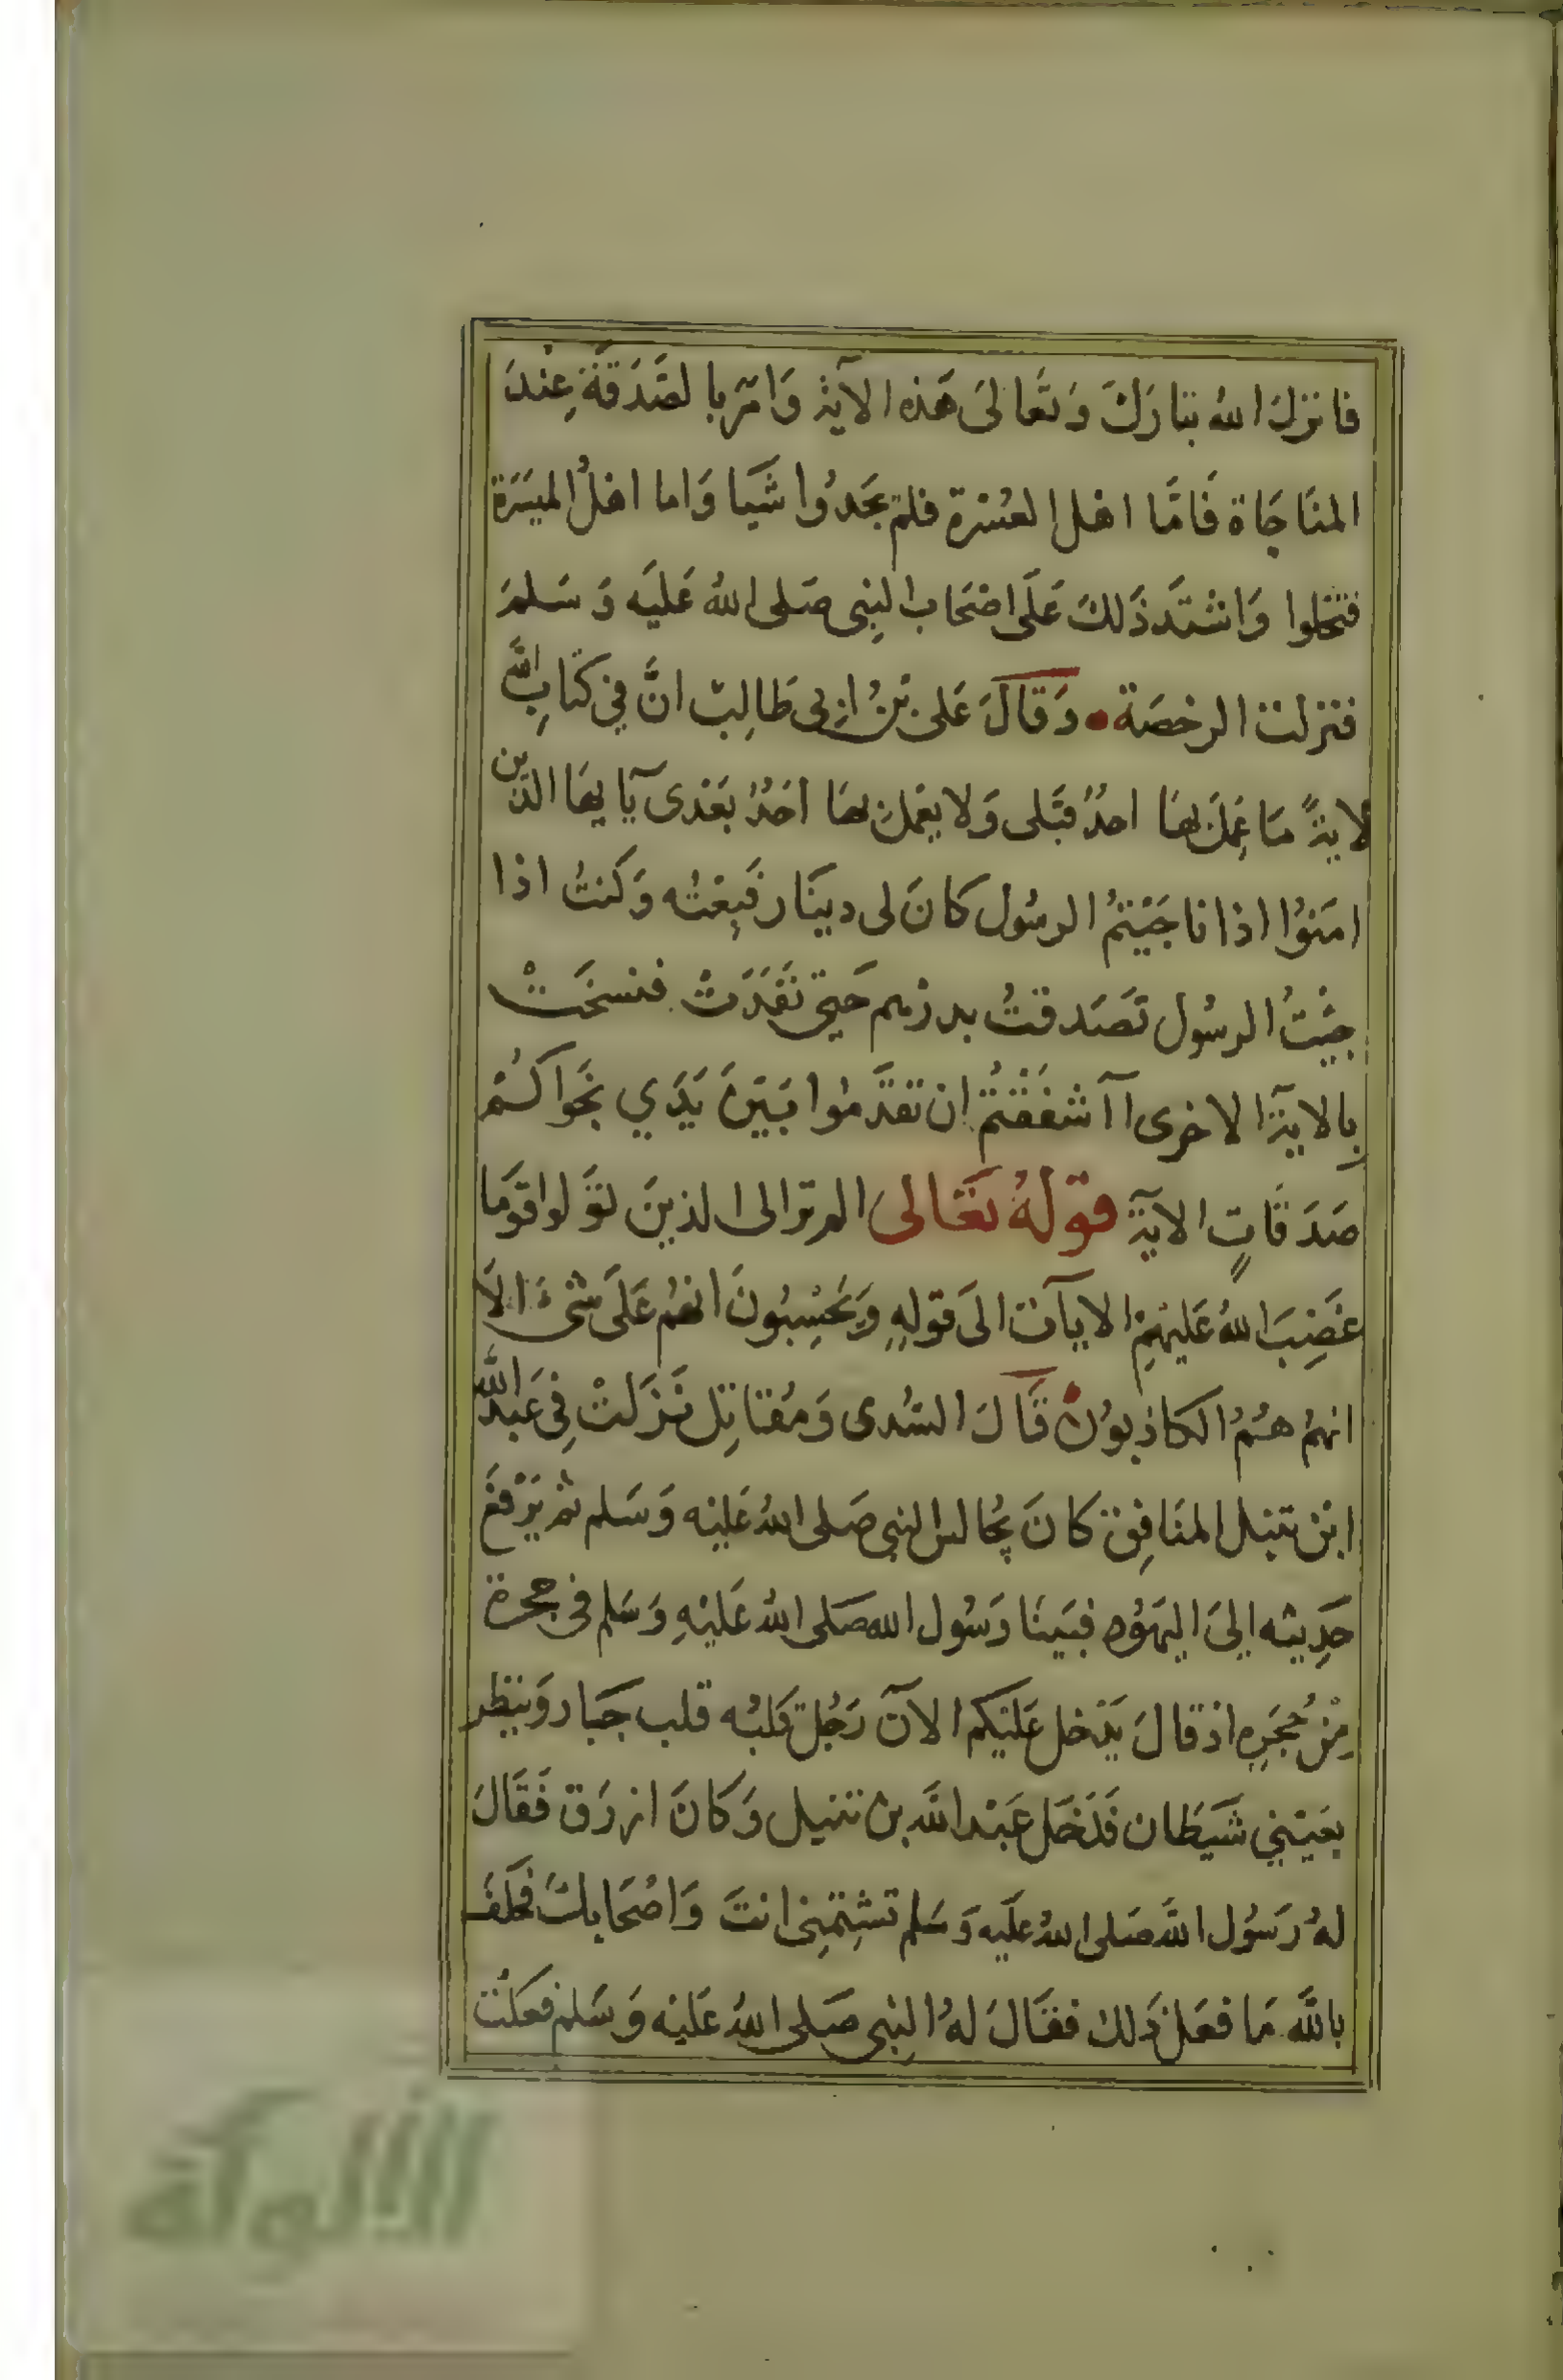 فانزل الله تبارك وَتعَالىَ هَذه الآية وَامَر بالصَّدَقَة عِنْدَ
المنَاجَاة فَامَّا اهل العُسْرَة فلم يجَدُوا شَيَا وَاما اهلُ الميسَرَة
فبخلوا وَاشتَدَّ ذَلكَ عَلَى اصْحَاب النِبى صَلى اللهُ عَليَه وَسَلمَ
فنزلت الرخصَة وَقَالَ عَلى بْنُ ابِى طَالِبْ انَّ فِي كتَابِ اللَّه
لايةً مَا عَمِلَ بهَا احدٌ قبَلى وَلا يعْمَل بهَا احَدٌ بَعْدى يَآيهَا الذين
امَنوُا اذا ناجَيْتمُ الرسُول كانَ لى دينَار فَبِعْتُه وَكنتُ اذا
جِيْتُ الرسُول تَصَدقتُ بدرهم حَتى نَفَدَتْ فنسخَتْ
بِالايَة الاخرى اآشفَقْتُمْ ان تقدَّموُا بَيْنَ يَدَي نجَواكُمْ
صَدَقَاتٍ الآيَة قولهُ تَعَالىَ الم تر الى الذينَ تَوَلوا قوَما
غَضِبَ اللهُ عَليهِمْ الايآت الىَ قولهِ وَيحَسِبُونَ انهُم عَلَى شىء الَا
انهمُ هُمُ الكاذبوُن قَالَ السُدى وَمُقاتِل نَزَلتْ فِى عَبد اللَّه
ابْن نبتل المنَافِق كانَ يُجالس النبى صَلى اللهُ عَليْه وَسَلم ثم يَرْفَع
حَدِيثه اِلىَ اليَهوُد فبَينَا رَسُول الله صَلى اللهُ عَليْهِ وَسَلم فى حجرة
مِنْ حُجَرِهِ اذ قالَ يَدْخل عَليْكم الآنَ رَجُل قلبُه قلب جَبار وَينظر
بعَيْنيْ شَيَطَان فَدَخَل عَبْد اللَّه بن نبتل وَكَانَ ازرَق فَقَالَ
لهُ رَسُول اللَّه صَلى اللهُ عَليَه وَسَلم تشِتمِنى انتَ وَاصْحَابكَ فحَلفَ
باللَّه مَا فعَل ذَلك فقَالَ لهُ النِبى صَلى اللهُ عَليْه وَسَلم فعَلتَ
الألوكة